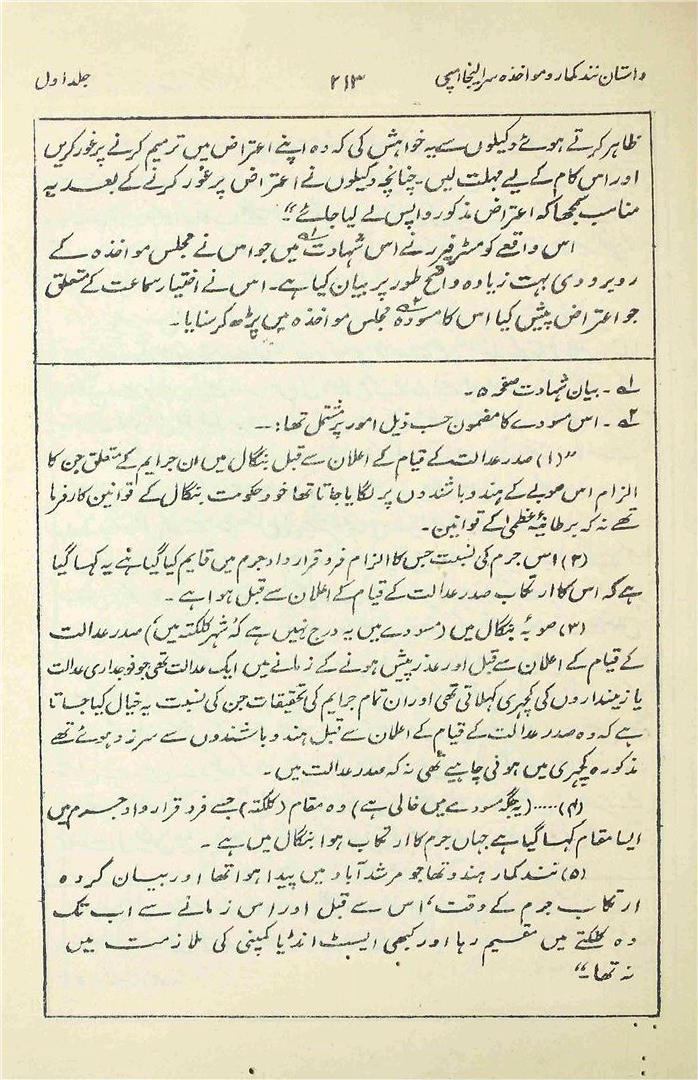 داستان نند کمار و مواخذہ سر الیجا امپی ۲۱۳ جلد اول
ظاہر کرتے ہوئے وکیلوں سے یہ خواہش کی کہ وہ اپنے اعتراض میں ترمیم کرنے پر غور کریں
اور اس کام کے لیے مہلت لیں۔ چنانچہ وکیلوں نے اعتراض پر غور کرنے کے بعد یہ
مناسب سمجھا کہ اعتراض مذکور واپس لے لیا جائے“
اس واقعے کو مسٹر فیرر نے اس شہادت۱؎ میں جو اس نے مجلس مواخذہ کے
روبرو دی بہت زیادہ واضح طور پر بیان کیا ہے۔ اس نے اختیار سماعت کے متعلق
جو اعتراض پیش کیا اس کا مسودہ۲؎ مجلس مواخذہ میں پڑھ کر سنایا۔
۱؎ ۔ بیان شہادت صفحہ ۵۔
۲؎ ۔ اس مسودے کا مضمون حسب ذیل امور پر مشتمل تھا:۔۔
”(۱) صدر عدالت کے قیام کے اعلان سے قبل بنگال میں ان جرایم کے متعلق جن کا
الزام اس صوبے کے ہندو باشندوں پر لگایا جاتا تھا خود حکومت بنگال کے قوانین کارفرما
تھے نہ کہ برطانیۂ عظمیٰ کے قوانین۔
(۲) اس جرم کی نسبت جس کا الزام فرد قرارداد جرم میں قایم کیا گیا ہے یہ کہا گیا
ہے کہ اس کا ارتکاب صدر عدالت کے قیام کے اعلان سے قبل ہوا ہے۔
(۳) صوبۂ بنگال میں (مسودے میں یہ درج نہیں ہے کہ ’شہر کلکتہ میں‘) صدر عدالت
کے قیام کے اعلان سے قبل اور عذر پیش ہونے کے زمانے میں ایک عدالت تھی جو فوجداری عدالت
یا زمینداروں کی کچہری کہلاتی تھی اور ان تمام جرایم کی تحقیقات جن کی نسبت یہ خیال کیا جاتا
ہے کہ وہ صدر عدالت کے قیام کے اعلان سے قبل ہندو باشندوں سے سرزد ہوئے تھے
مذکورہ کچہری میں ہونی چاہیے تھی نہ کہ صدر عدالت میں۔
(۴)..... (یہ جگہ مسودے میں خالی ہے) وہ مقام (کلکتہ) جسے فرد قرارداد جرم میں
ایسا مقام کہا گیا ہے جہاں جرم کا ارتکاب ہوا بنگال میں ہے۔
(۵) نند کمار ہندو تھا جو مرشد آباد میں پیدا ہوا تھا اور بیان کردہ
ارتکاب جرم کے وقت، اس سے قبل اور اس زمانے سے اب تک
وہ کلکتے میں مقیم رہا اور کبھی ایسٹ انڈیا کمپنی کی ملازمت میں
نہ تھا۔“